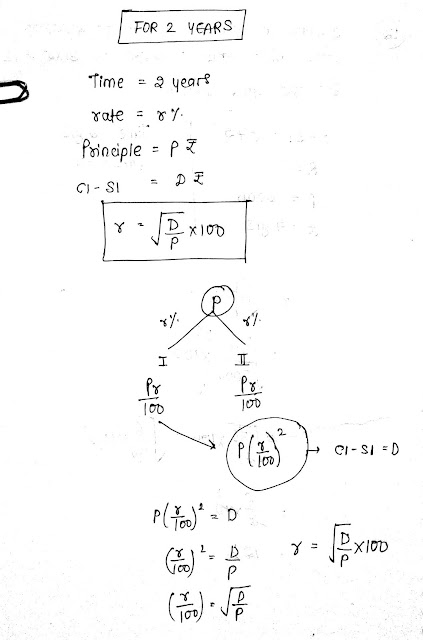 FOR 2 YEARS
Time = 2 years
rate = r%.
Principle = P ₹
CI - SI = D ₹
r = √(D/P) × 100
P
r%. r%.
I II
Pr/100 Pr/100
P(r/100)² → CI - SI = D
P(r/100)² = D
(r/100)² = D/P r = √(D/P) × 100
(r/100) = √(D/P)